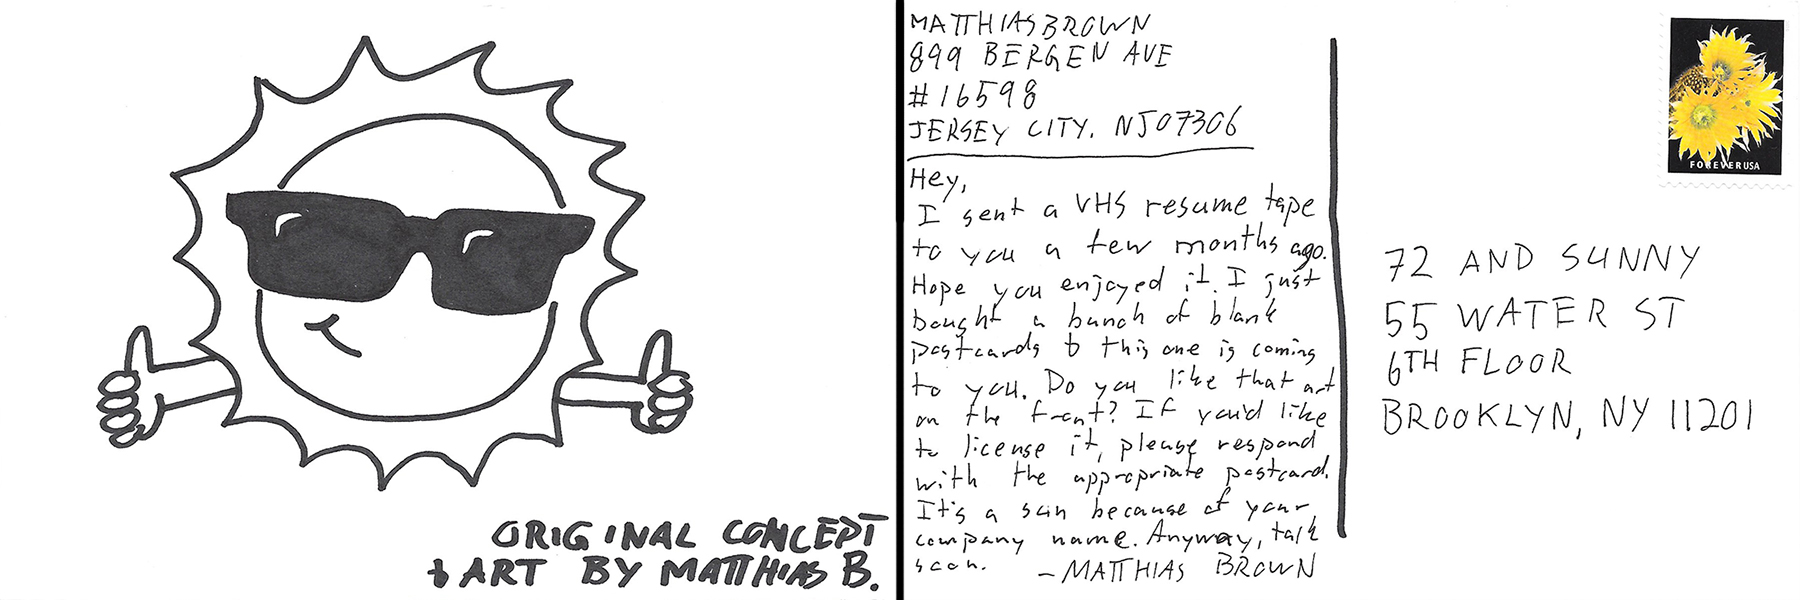 ORIGINAL CONCEPT
& ART BY MATTHIAS B.
MATTHIAS BROWN
899 BERGEN AVE
#16598
JERSEY CITY, NJ 07306
Hey,
I sent a VHS resume tape
to you a few months ago.
Hope you enjoyed it. I just
bought a bunch of blank
postcards & this one is coming
to you. Do you like that art
on the front? If you'd like
to license it, please respond
with the appropriate postcard.
It's a sun because of your
company name. Anyway, talk
soon.
- MATTHIAS BROWN
FOREVER USA
72 AND SUNNY
55 WATER ST
6TH FLOOR
BROOKLYN, NY 11201